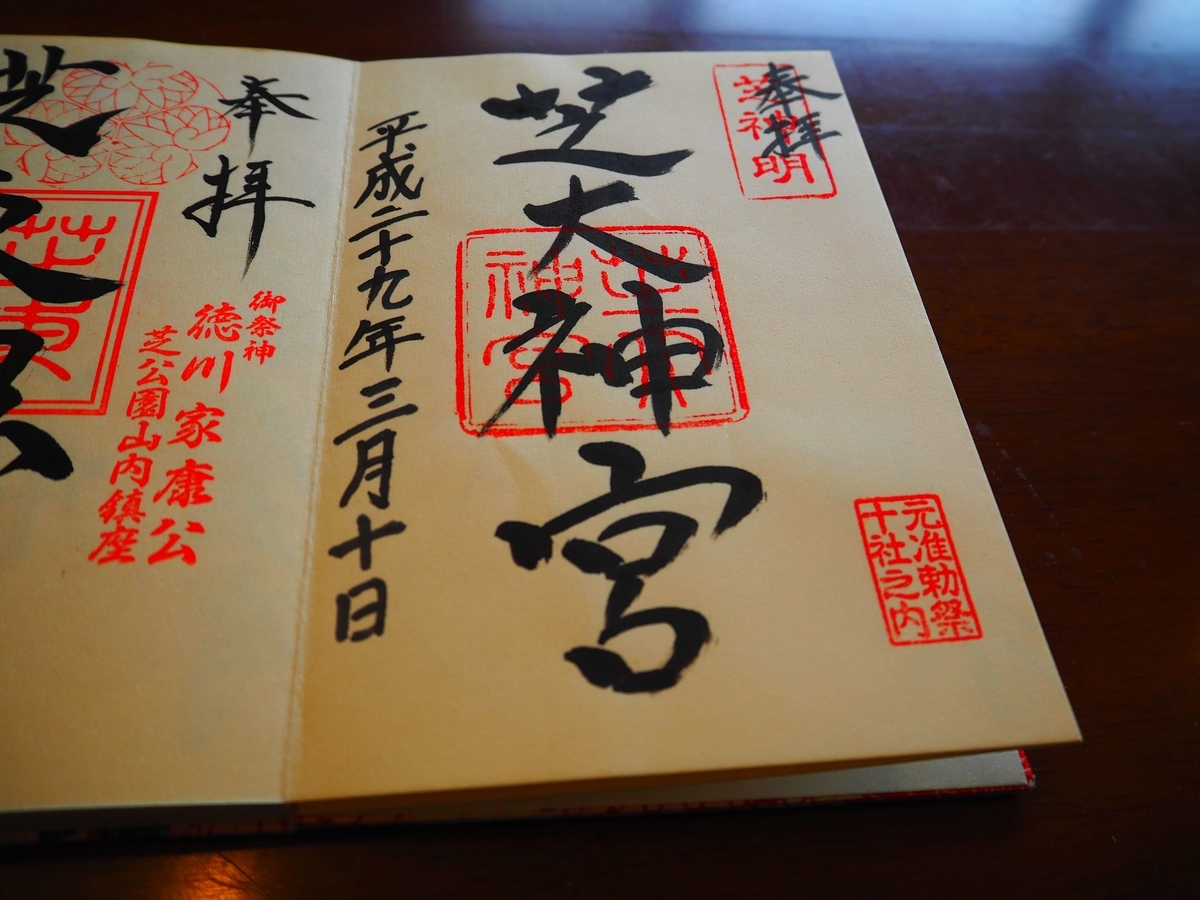 奉拝
芝神明
元准勅祭
十社之内
芝大神宮
神宮
平成二十九年三月十日
奉拝
御祭神
徳川家康公
芝公園山内鎮座
芝東